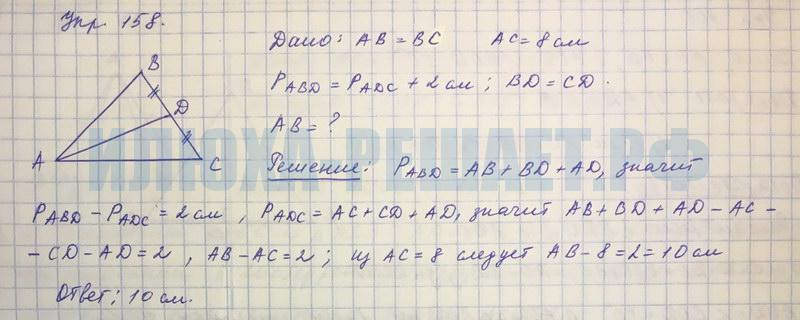 Упр. 158.
Дано: AB = BC AC = 8 см
P ABD = P ADC + 2 см; BD = CD.
AB = ?
B
D
A
C
ИЛЮХА-РЕШАЕТ.РФ
Решение: P ABD = AB + BD + AD, значит
P ABD - P ADC = 2 см, P ADC = AC + CD + AD, значит AB + BD + AD - AC -
- CD - AD = 2, AB - AC = 2; из AC = 8 следует AB - 8 = 2 = 10 см
Ответ: 10 см.